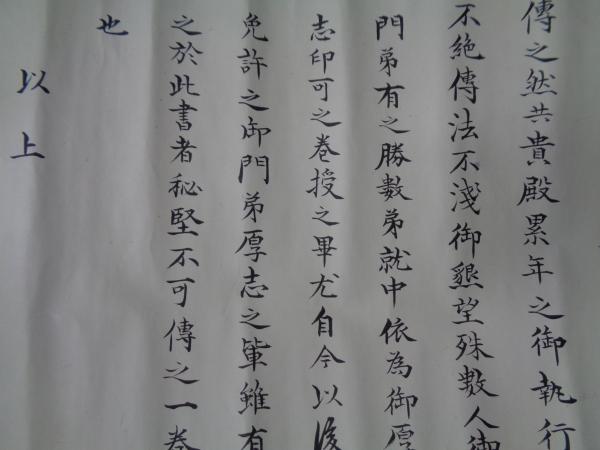 傳之然共貴殿累年之御執行
不絶傳法不淺御懇望殊数人御
門弟有之勝数弟就中依為御厚
志印可之巻授之畢尤自今以後
免許之御門弟厚志之輩雖有
之於此書者秘堅不可傳之一巻
也
以上